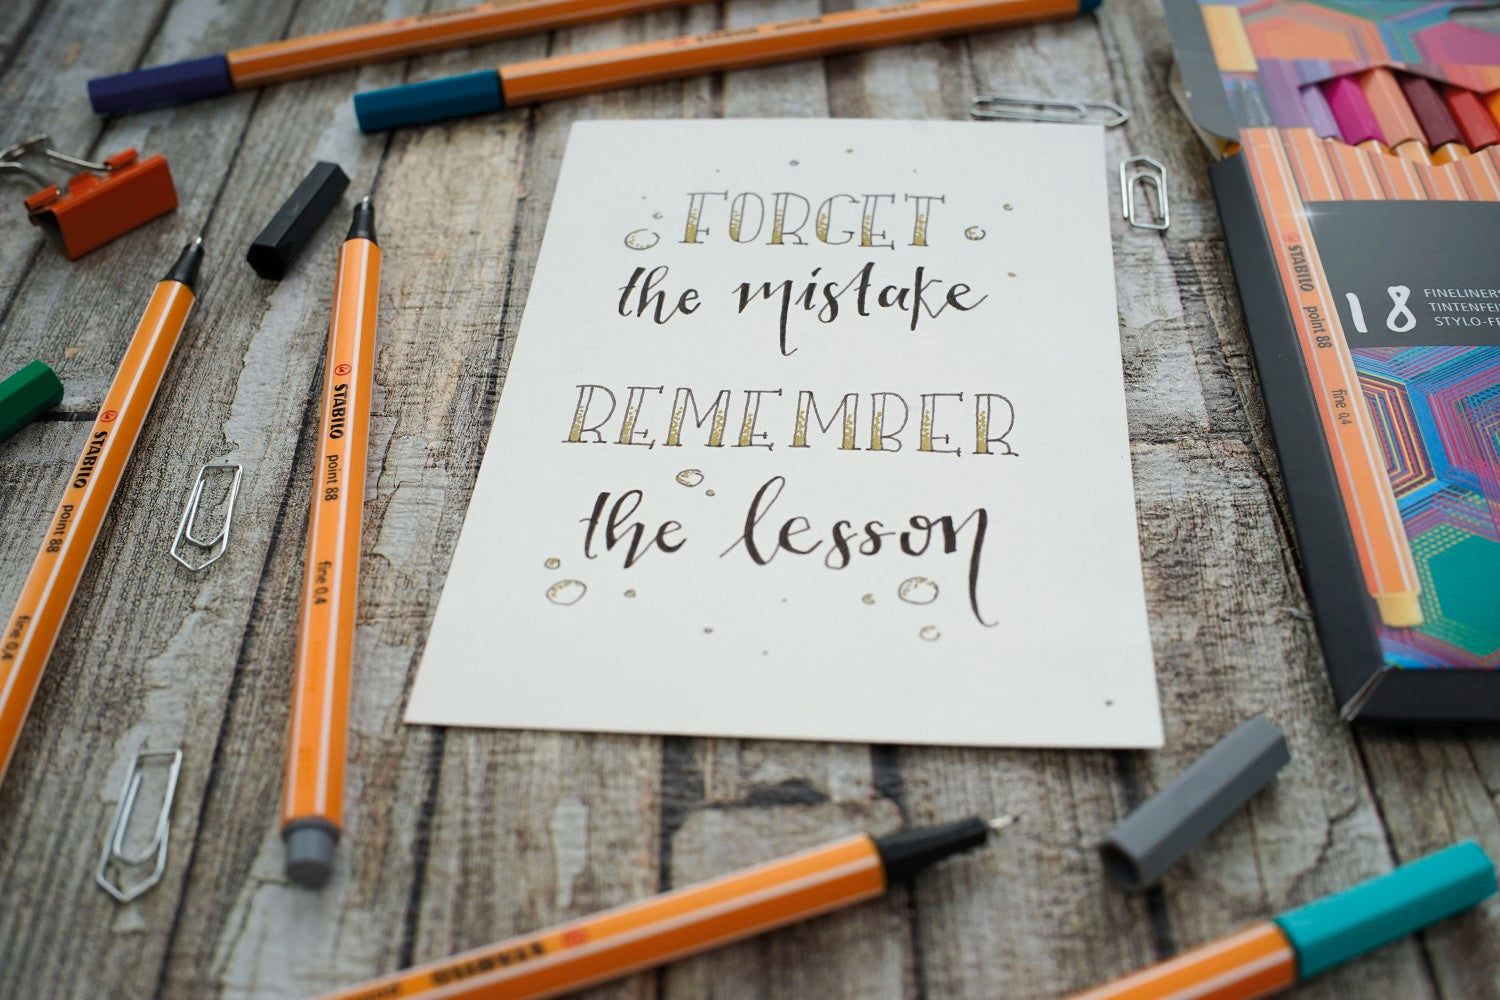 FORGET
the mistake
REMEMBER
the lesson
STABILO point 88 fine 0,4
STABILO point 88 fine 0,4
STABILO
STABILO point 88 fine 0,4
18
FINELINERS